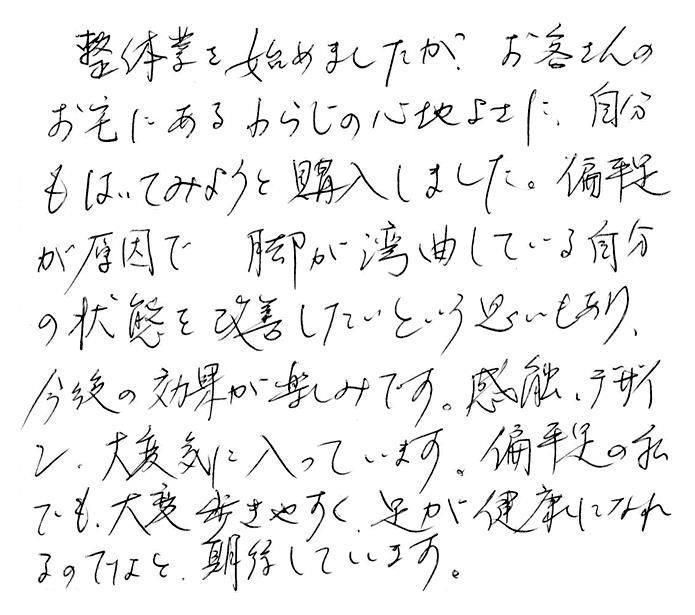 整体業を始めましたが、お客さんの
お宅にあるわらじの心地よさに、自分
もはいてみようと購入しました。偏平足
が原因で 脚が湾曲している自分
の状態を改善したいという思いもあり、
今後の効果が楽しみです。感触、デザイ
ン、大変気に入っています。偏平足の私
でも、大変歩きやすく、足が健康になれ
るのではと、期待しています。